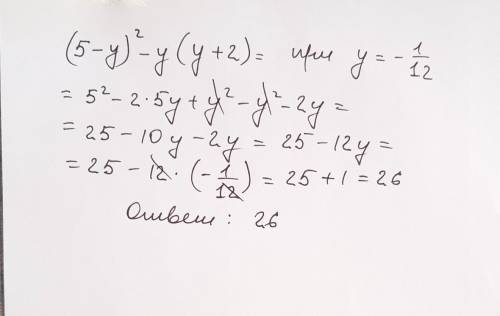 (5-y)² - y(y+2) = при y = -1/12
= 5² - 2·5y + y² - y² - 2y =
= 25 - 10y - 2y = 25 - 12y =
= 25 - 12 · (-1/12) = 25 + 1 = 26
Ответ: 26